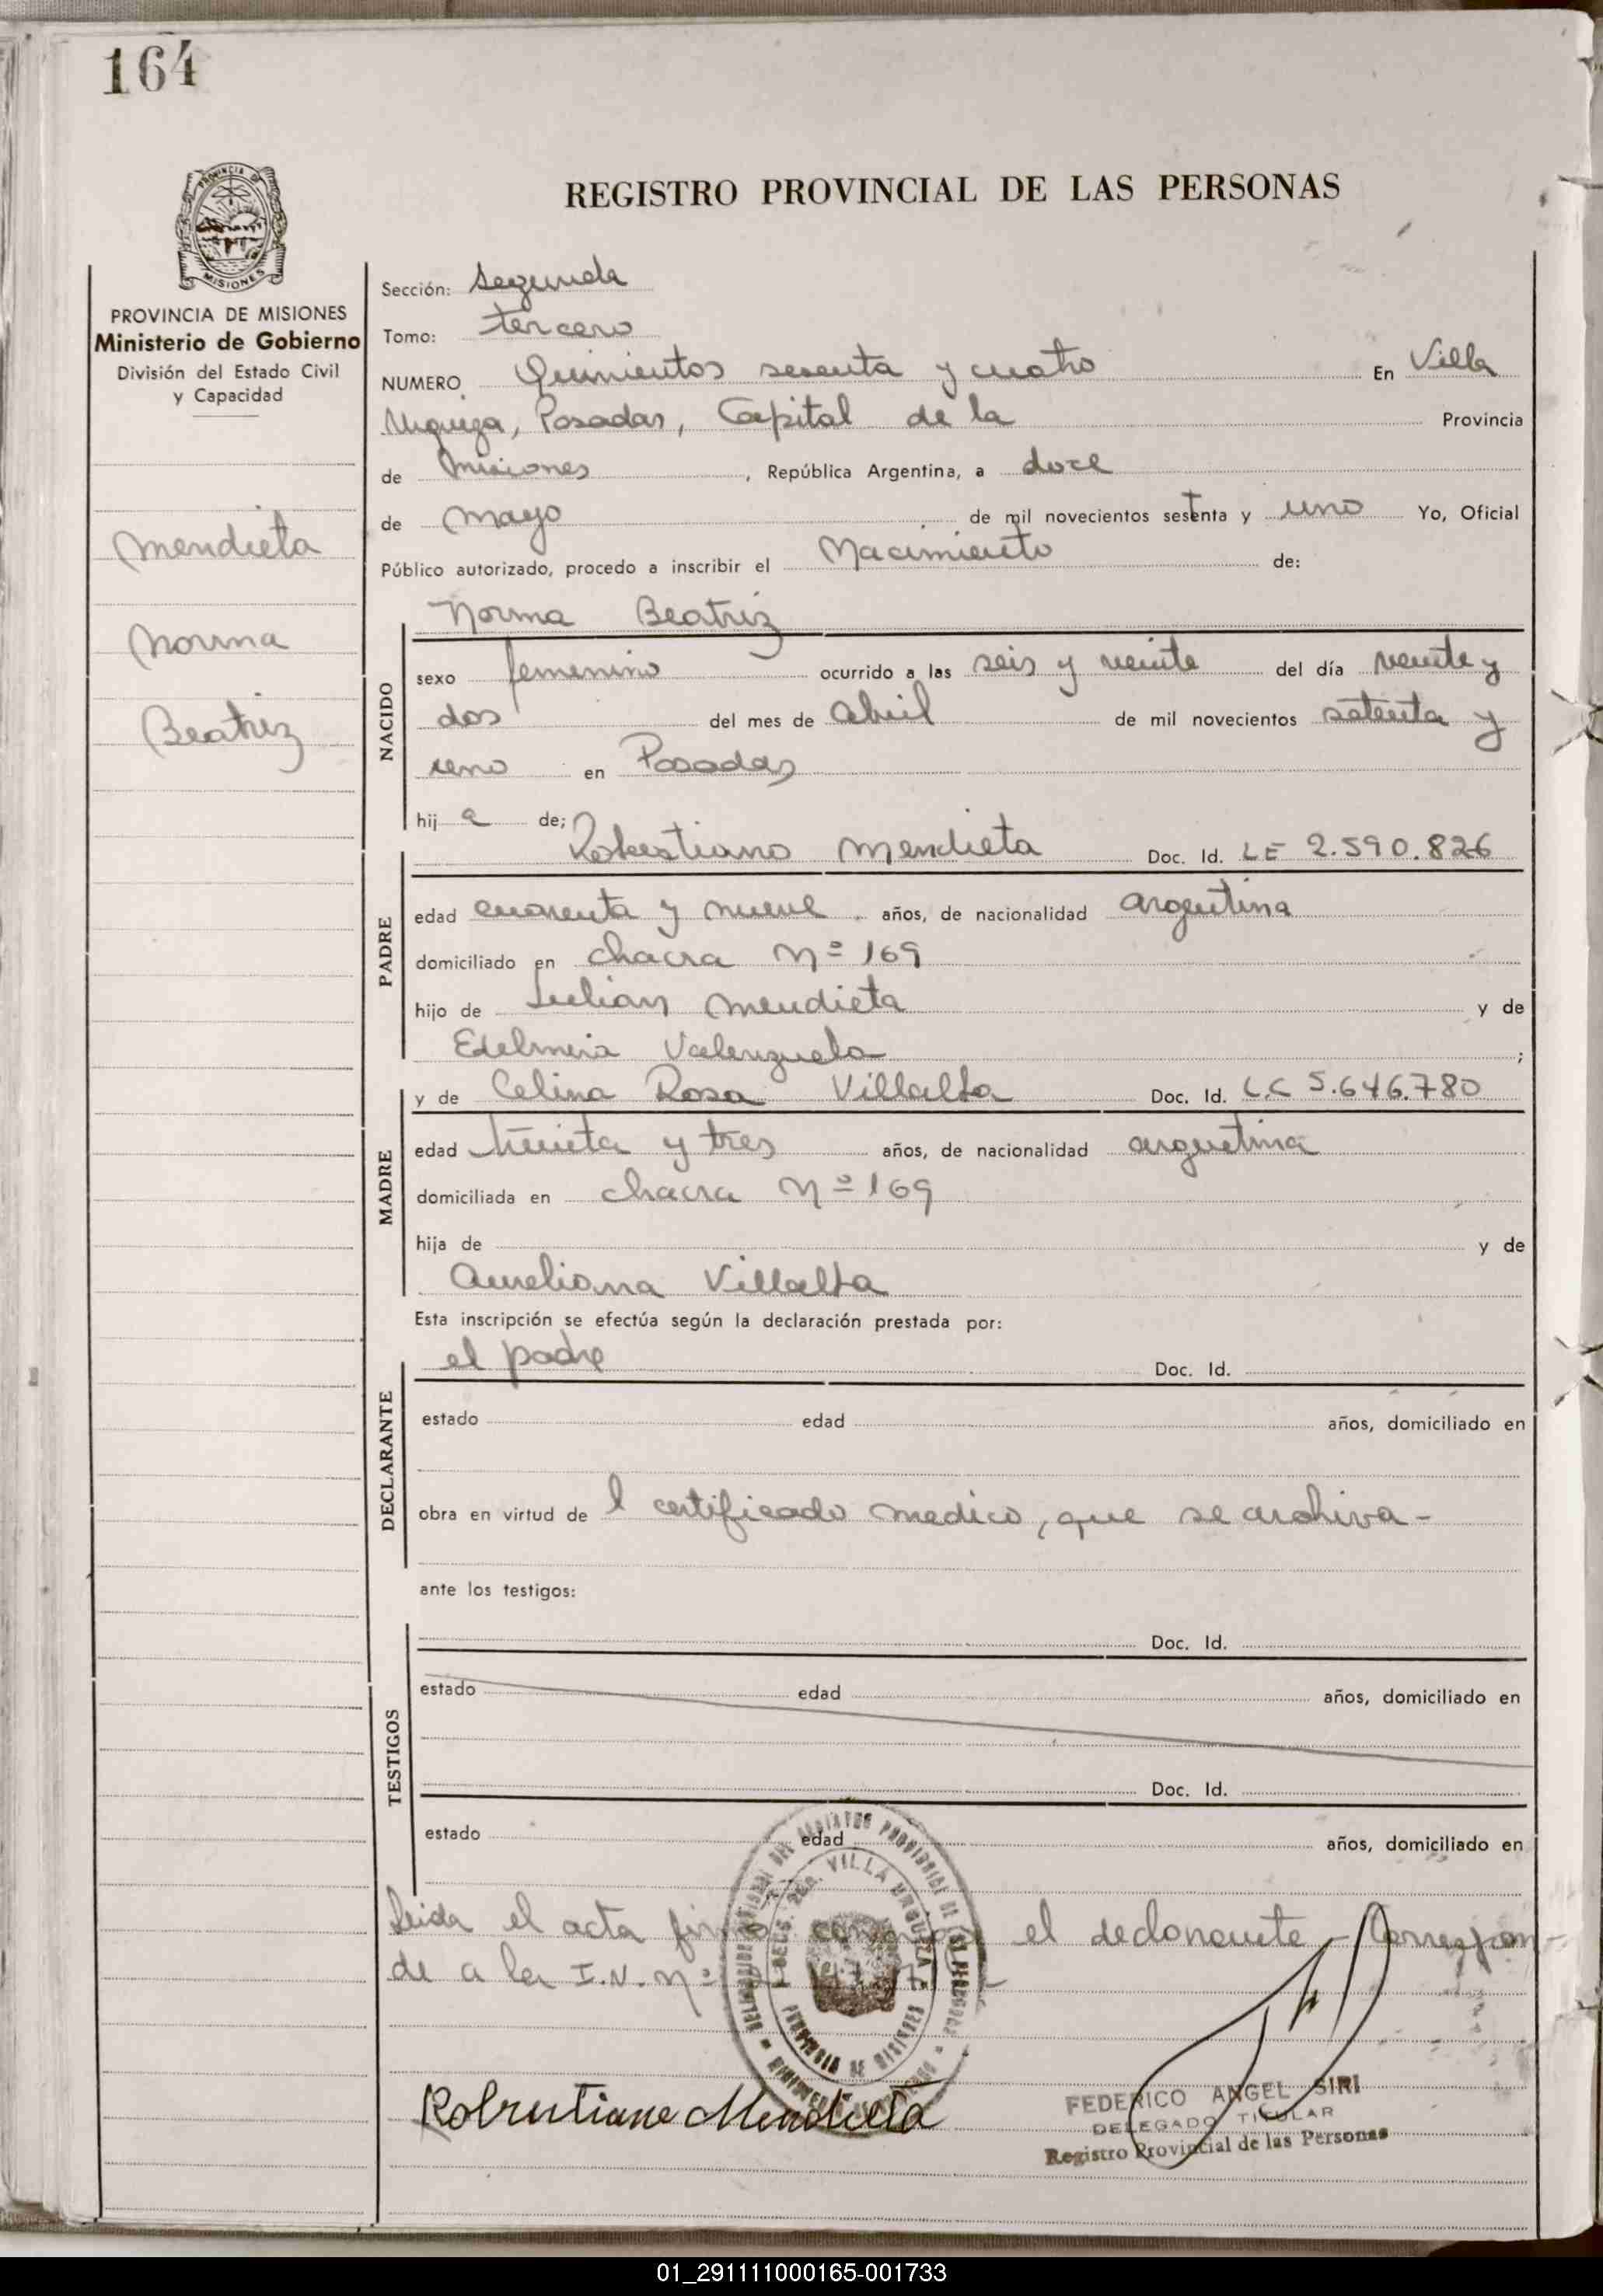 164
PROVINCIA DE
MISIONES
REGISTRO PROVINCIAL DE LAS PERSONAS
PROVINCIA DE MISIONES
Ministerio de Gobierno
División del Estado Civil
y Capacidad
Mendieta
Norma
Beatriz
Sección: Segunda
Tomo: tercero
NUMERO Quinientos sesenta y cuatro En Villa
Urquiza, Posadas, Capital de la Provincia
de Misiones, República Argentina, a doce
de Mayo de mil novecientos setenta y uno Yo, Oficial
Público autorizado, procedo a inscribir el Nacimiento de:
Norma Beatriz
NACIDO
sexo femenino ocurrido a las seis y veinte del día veinte y
dos del mes de Abril de mil novecientos setenta y
uno en Posadas
hij a de;
PADRE
Robustiano Mendieta Doc. Id. LE 2.590.826
edad cuarenta y nueve años, de nacionalidad argentina
domiciliado en chacra Nº 169
hijo de Julian Mendieta y de
Edelmira Valenzuela;
MADRE
y de Celina Rosa Villalba Doc. Id. L.C 5.646.780
edad treinta y tres años, de nacionalidad argentina
domiciliada en chacra Nº 169
hija de y de
Aureliana Villalba
Esta inscripción se efectúa según la declaración prestada por:
DECLARANTE
el padre Doc. Id.
estado edad años, domiciliado en
obra en virtud de l certificado medico, que se archiva-
ante los testigos:
TESTIGOS
Doc. Id.
estado edad años, domiciliado en
Doc. Id.
estado edad años, domiciliado en
Leida el acta firma conmigo el declarante - Correspon-
de a la I.N. Nº
VILLA URQUIZA
PROVINCIA DE MISIONES
Robustiano Mendieta
FEDERICO ANGEL SIRI
DELEGADO TITULAR
Registro Provincial de las Personas
01_291111000165-001733